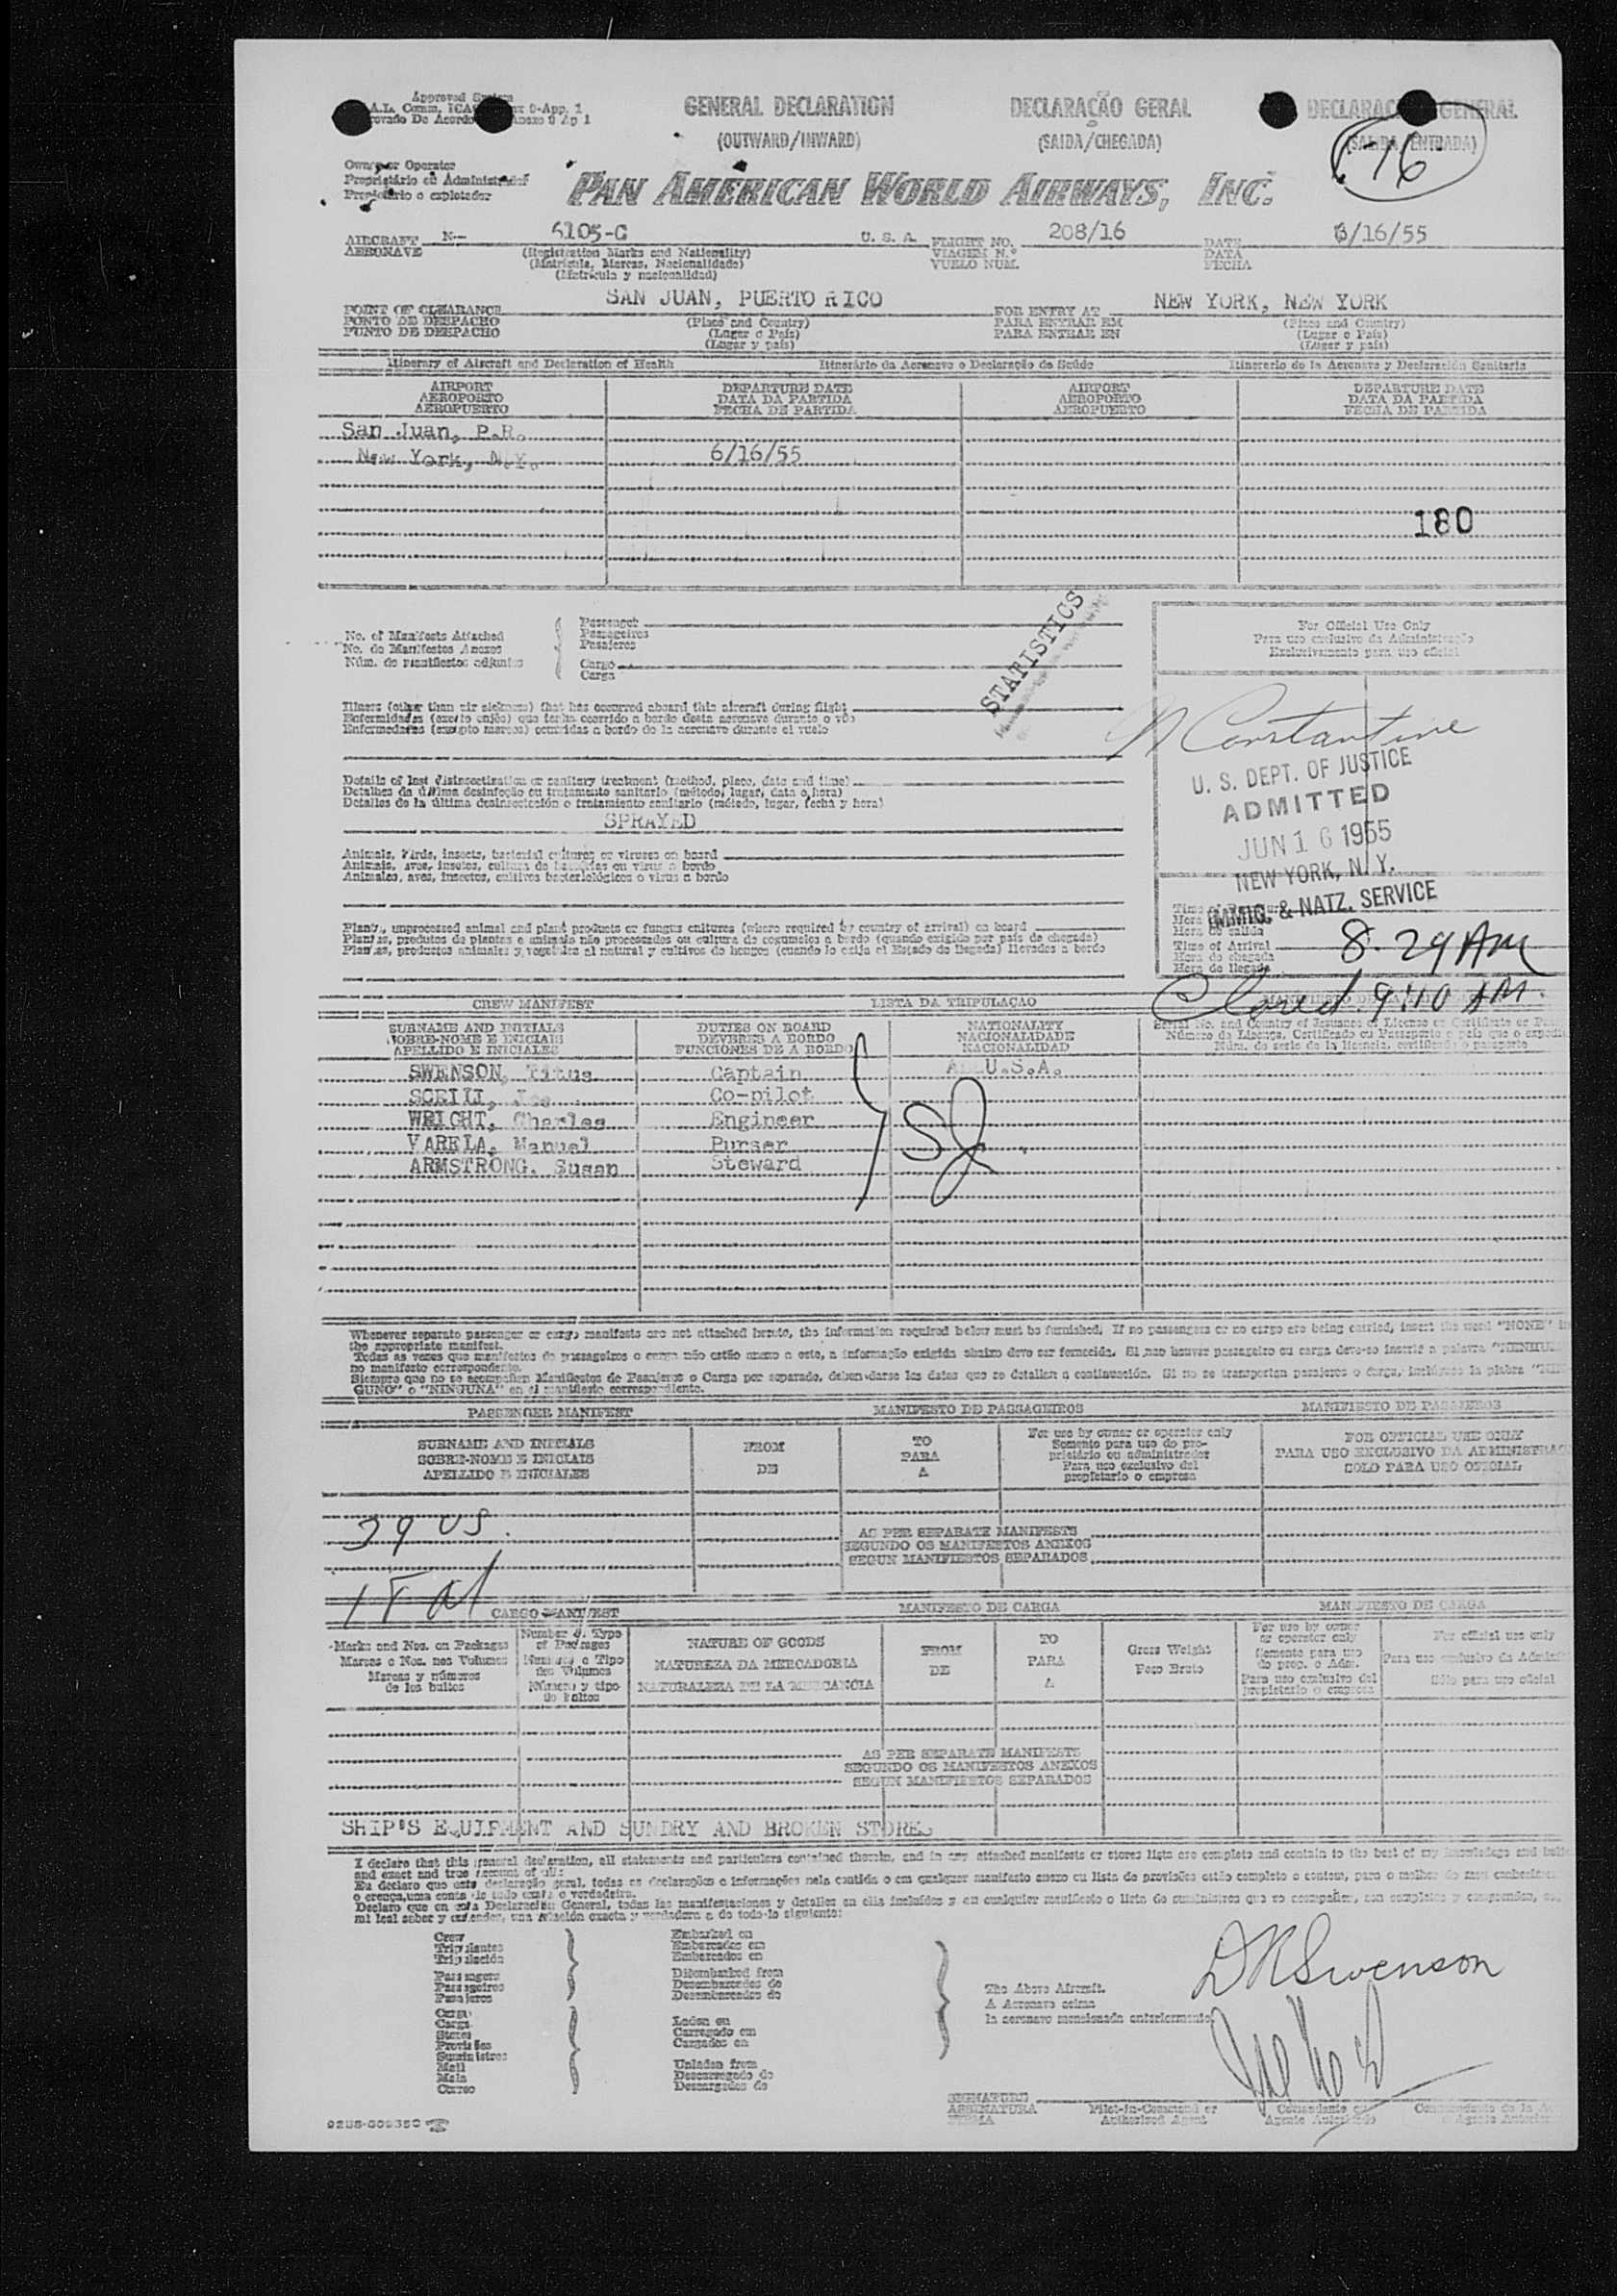 GENERAL DECLARATION
(OUTWARD/INWARD)
DECLARAÇÃO GERAL
(SAIDA/CHEGADA)
GENERAL
16
Owner or Operator
Proprietário ou Administrador
Propietario o explotador
PAN AMERICAN WORLD AIRWAYS, INC.
AIRCRAFT N- 6105-C U. S. A. FLIGHT NO. 208/16 DATE 6/16/55
AERONAVE (Registration Marks and Nationality) VIAGEM N.º DATA
(Matrícula, Marcas, Nacionalidade) VUELO NUM. FECHA
(Matrícula y nacionalidad)
SAN JUAN, PUERTO RICO NEW YORK, NEW YORK
POINT OF CLEARANCE FOR ENTRY AT
PONTO DE DESPACHO (Place and Country) PARA ENTRAR EM (Place and Country)
PUNTO DE DESPACHO (Lugar e País) PARA ENTRAR EN (Lugar e País)
(Lugar y país) (Lugar y país)
Itinerary of Aircraft and Declaration of Health Itinerário da Aeronave e Declaração de Saúde Itinerario de la Aeronave y Declaración Sanitaria
AIRPORT DEPARTURE DATE AIRPORT DEPARTURE DATE
AEROPORTO DATA DA PARTIDA AEROPORTO DATA DA PARTIDA
AEROPUERTO FECHA DE PARTIDA AEROPUERTO FECHA DE PARTIDA
San Juan, P.R.
New York, N.Y. 6/16/55
180
No. of Manifests Attached
No. de Manifestos Anexos
Núm. de manifiestos adjuntos
Passenger
Passageiros
Pasajeros
Cargo
Carga
STATISTICS
For Official Use Only
Para uso exclusivo da Administração
Exclusivamente para uso oficial
Illness (other than air sickness) that has occurred aboard this aircraft during flight
Enfermidades (exceto enjôo) que tenha ocorrido a bordo desta aeronave durante o vôo
Enfermedades (excepto mareos) ocurridas a bordo de la aeronave durante el vuelo
Constantine
U. S. DEPT. OF JUSTICE
ADMITTED
JUN 16 1955
NEW YORK, N. Y.
IMMIG. & NATZ. SERVICE
Details of last disinsectization or sanitary treatment (method, place, date and time)
Detalhes da última desinfeção ou tratamento sanitario (método, lugar, data o hora)
Detalles de la última desinsectación o tratamiento sanitario (método, lugar, fecha y hora)
SPRAYED
Animals, birds, insects, bacterial cultures or viruses on board
Animais, aves, insetos, cultura de bacterias ou virus a bordo
Animales, aves, insectos, cultivos bacteriológicos o virus a bordo
Plants, unprocessed animal and plant products or fungus cultures (where required by country of arrival) on board
Plantas, produtos de plantas e animais não processados ou cultura de cogumelos a bordo (quando exigido por país de chegada)
Plantas, productos animales y vegetales al natural y cultivos de hongos (cuando lo exija el Estado de llegada) llevados a bordo
Hora de salida
Time of Arrival 8.29 AM
Hora da chegada
Hora de llegada
Closed 9:40 AM.
CREW MANIFEST LISTA DA TRIPULAÇAO
SURNAME AND INITIALS DUTIES ON BOARD NATIONALITY Serial No. and Country of Issuance of License or Certificate or
SOBRE-NOME E INICIAIS DEVERES A BORDO NACIONALIDADE Número da Licença, Certificado ou Passaporte e país que o
APELLIDO E INICIALES FUNCIONES DE A BORDO NACIONALIDAD Núm. de serie de la licencia, certificado o pasaporte
SWENSON, Titus Captain ALL U.S.A.
Co-pilot
WRIGHT, Charles Engineer
VARELA, Manuel Purser
ARMSTRONG, Susan Steward
Whenever separate passenger or cargo manifests are not attached hereto, the information required below must be furnished. If no passengers or no cargo are being carried, insert the word "NONE" in
the appropriate manifest.
Todas as vezes que manifestos de passageiros o carga não estão anexo a este, a informação exigida abaixo deve ser fornecida. Si nao houver passageiro ou carga deve-se inserir a palavra
no manifesto correspondente.
Siempre que no se acompañen Manifiestos de Pasajeros o Carga por separado, deben darse los datos que se detallan a continuación. Si no se transportan pasajeros o carga, inclúyase la plabra
GUNO" o "NINGUNA" en el manifiesto correspondiente.
PASSENGER MANIFEST MANIFESTO DE PASSAGEIROS MANIFIESTO DE PASAJEROS
SURNAME AND INITIALS FROM TO For use by owner or operator only FOR OFFICIAL USE ONLY
SOBRE-NOME E INICIAIS DE PARA Somente para uso do pro- PARA USO EXCLUSIVO DA
APELLIDO E INICIALES A prietário ou administrador SOLO PARA USO OFICIAL
Para uso exclusivo del
propietario o empresa
39 US.
AS PER SEPARATE MANIFESTS
SEGUNDO OS MANIFESTOS ANEXOS
SEGUN MANIFIESTOS SEPARADOS
CARGO MANIFEST MANIFESTO DE CARGA MANIFIESTO DE CARGA
Marks and Nos. on Packages Number & Type of Packages NATURE OF GOODS FROM TO Gross Weight For use by owner or operator only For official use only
Marcas e Nos. nos Volumes Numero e Tipo dos Volumes NATUREZA DA MERCADORIA DE PARA Peso Bruto Somente para uso do prop. o Adm.
Marcas y números de los bultos Número y tipo de bultos NATURALEZA DE LA MERCANCIA A Para uso exclusivo del propietario o empresa Sólo para uso oficial
AS PER SEPARATE MANIFESTS
SEGUNDO OS MANIFESTOS ANEXOS
SEGUN MANIFIESTOS SEPARADOS
SHIP'S EQUIPMENT AND SUNDRY AND BROKEN STORES
I declare that this general declaration, all statements and particulars contained therein, and in any attached manifests or stores lists are complete and contain to the best of my knowledge and
and exact and true account of all:
Eu declaro que esta declaração geral, todas as declarações e informações nela contida o em qualquer manifesto anexo ou lista de provisões estão completo o contem, para o melhor do meu
o crença, uma conta de tudo exata o verdadeira.
Declaro que en esta Declaración General, todas las manifestaciones y detalles en ella incluídos y en cualquier manifiesto o lista de suministros que se acompañen, son completos y comprenden,
mi leal saber y entender, una relación exacta y verdadera de todo lo siguiente:
Crew
Tripulantes
Tripulación
Passengers
Passageiros
Pasajeros
Cargo
Carga
Stores
Provisões
Suministros
Mail
Mala
Correo
Embarked on
Embarcados em
Embarcados en
Disembarked from
Desembarcados do
Desembarcados de
Laden on
Carregado em
Cargados en
Unladen from
Descarregado do
Descargados de
The Above Aircraft.
A Aeronave acima
la aeronave mencionada anteriormente
Swenson
SIGNATURE
ASSINATURA Pilot-in-Command or Comandante ou
FIRMA Authorized Agent Agente Autorizado